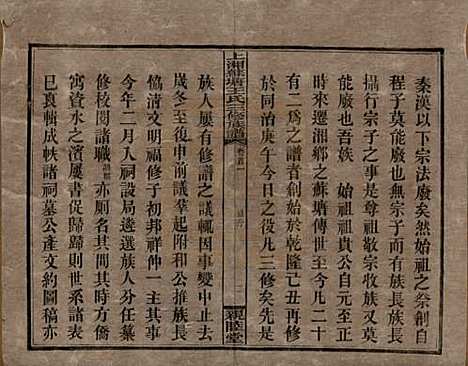 秦漢以下宗法廢矣然始祖之祭創自
程子莫能廢也無宗子而有族長族長
攝行宗子之事是尊祖敬宗收族又莫
能廢也吾族 始祖祖貴公自元至正
時來遷湘鄉之蘇塘傳世至今凡二十
有二爲之譜者創始於乾隆己丑再修
於同治庚午今日之役凡三修矣先是
上湘蘇塘王氏三修族譜
卷首一
親睦堂
族人屢有修譜之議輒因事變中止去
歲冬至復申前議羣起附和公推族長
恊清文明福修子初邦祥仲一主其事
今年二月入祠設局遴選族人分任纂
修校閱諸職 亦厠名其間其東方僑
寓資水之濱屢書促歸歸則世系諸表
已哀輯成帙諸祠墓公產文約圖稿亦